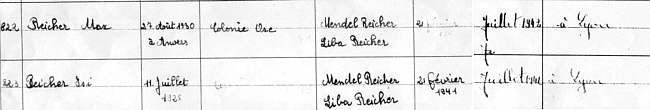 822 Reicher Max 27 août 1930 Colonie Ose Mendel Reicher Juillet 1942 à Lyon
à Anvers Liba Reicher
823 Reicher Isi 11 Juillet Mendel Reicher 21 février Juillet à Lyon
Liba Reicher 1941